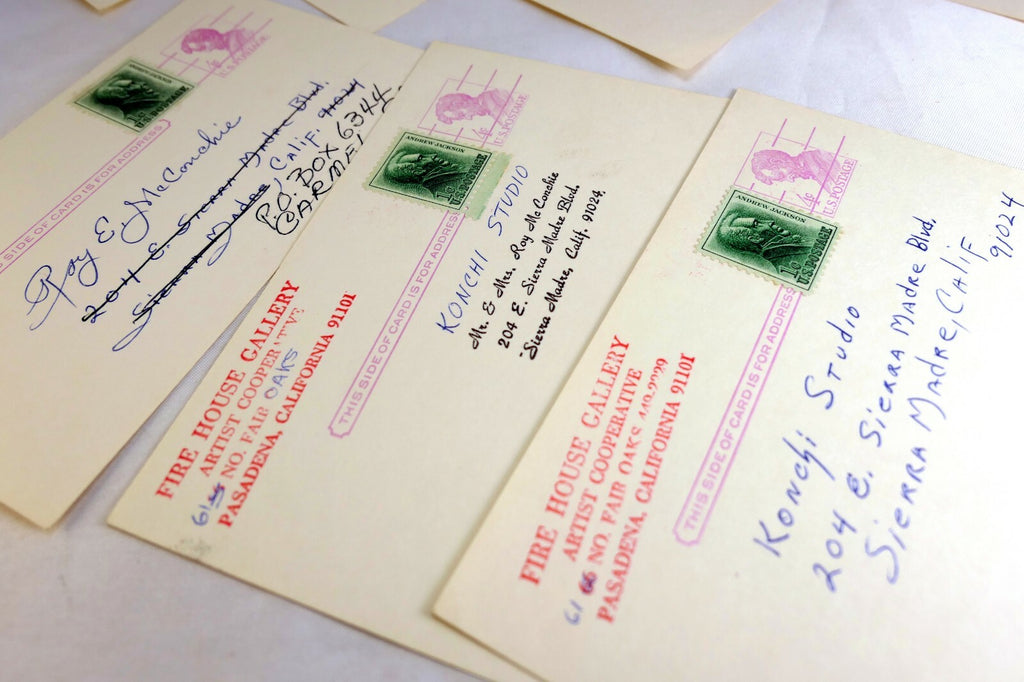 4¢
U.S. POSTAGE
ANDREW JACKSON
THIS SIDE OF CARD IS FOR ADDRESS
Roy E McConchie
204 E. Sierra Madre Blvd.
Sierra Madre Calif. 91024
P.O. BOX 6344
CARMEL
4¢
U.S. POSTAGE
ANDREW JACKSON
1¢
U.S. POSTAGE
THIS SIDE OF CARD IS FOR ADDRESS
KONCHI STUDIO
Mr. & Mrs. Roy McConchie
204 E. Sierra Madre Blvd.
Sierra Madre, Calif. 91024
FIRE HOUSE GALLERY
ARTIST COOPERATIVE
61 NO. FAIR OAKS
PASADENA, CALIFORNIA 91101
4¢
U.S. POSTAGE
ANDREW JACKSON
1¢
U.S. POSTAGE
THIS SIDE OF CARD IS FOR ADDRESS
Konchi Studio
204 E. Sierra Madre Blvd.
Sierra Madre, Calif
91024
FIRE HOUSE GALLERY
ARTIST COOPERATIVE
61 66 NO. FAIR OAKS
PASADENA, CALIFORNIA 91101